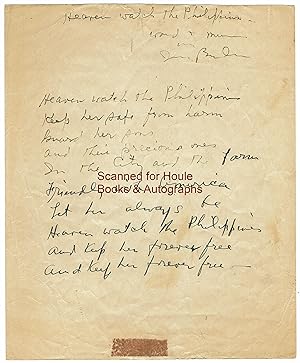 Heaven watch the Philippines
word & music
Heaven watch the Philippines
Keep her safe from harm
Guard her sons
and their precious ones
In the City and the farm
Friendly America
Scanned for Houle
Books & Autographs
Let her always be
Heaven watch the Philippines
and keep her forever free
and keep her forever free